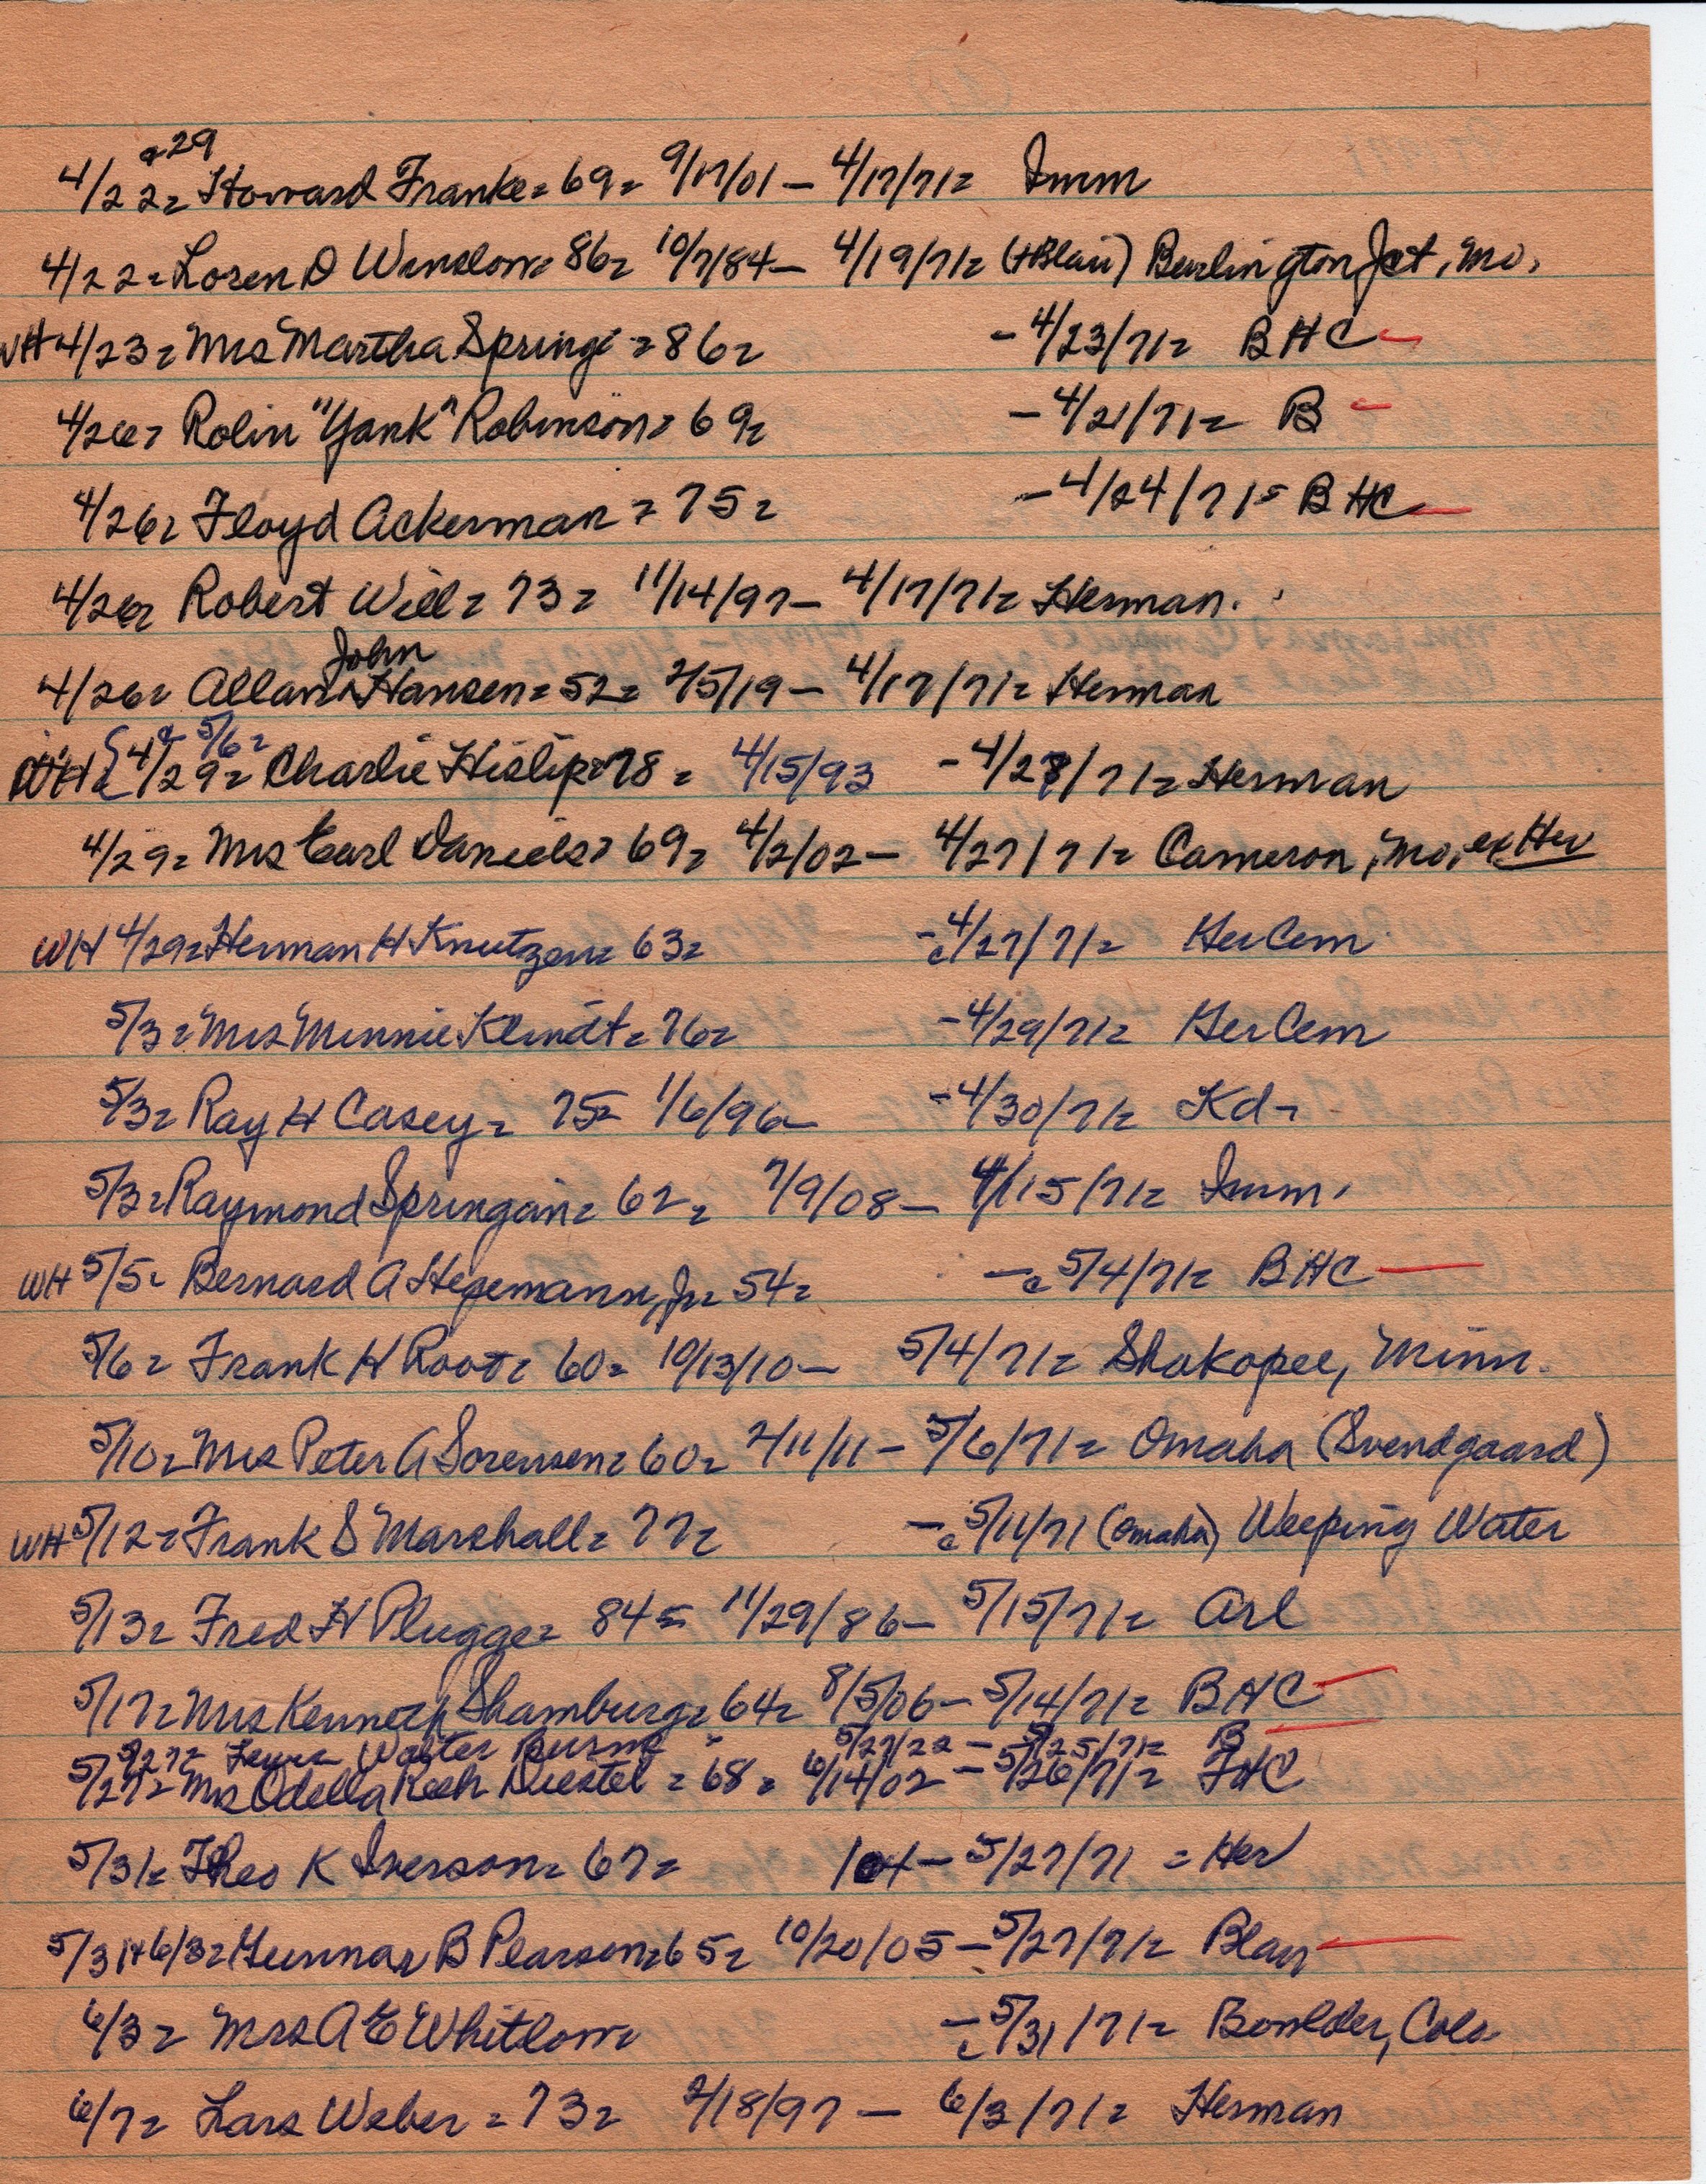 & 29
4/22= Howard Franke= 69= 9/17/01 - 4/17/71= Imm
4/22= Loren D Winslow= 86= 10/7/84- 4/19/71= (+Blair) Burlington Jct, Mo.
WH 4/23= Mrs Martha Springi = 86= - 4/23/71= BHC
4/26= Rolin "Yank" Robinson= 69= - 4/21/71= B
4/26= Floyd Ackerman = 75= - 4/24/71= BHC
4/26= Robert Will= 73= 11/14/97- 4/17/71= Herman.
John
4/26= Allan ^ Hansen= 52= 2/5/19- 4/17/71= Herman
& 5/6=
WH { 4/29= Charlie Hislip= 78= 4/15/93 - 4/27/71= Herman
4/29= Mrs Earl Daniels= 69= 4/2/02- 4/27/71= Cameron, Mo, ex Her
WH 4/29= Herman H Knutzen= 63= -c 4/27/71= Her Cem
5/3= Mrs Minnie Klindt= 76= - 4/29/71= Her Cem
5/3= Ray H Casey= 75= 1/6/96- - 4/30/71= Kd-
5/3= Raymond Springain= 62= 7/9/08- 4/15/71= Imm.
WH 5/5= Bernard A Hegemann, Jr= 54= -c 5/4/71= BHC
5/6= Frank H Root= 60= 10/13/10- 5/4/71= Shakopee, Minn.
5/10= Mrs Peter A Sorensen= 60= 2/11/11- 5/6/71= Omaha (Svendgaard)
WH 5/12= Frank S Marshall= 77= -c 5/11/71 (Omaha) Weeping Water
5/13= Fred H Plugge= 84= 11/29/86- 5/15/71= Arl
5/17= Mrs Kenneth Shamburg= 64= 8/5/06- 5/14/71= BHC
5/27= Lewis Walter Burns = 5/27/22- 5/25/71= B
5/27= Mrs Odella Keeh Diestel = 68= 6/14/02- 5/26/71= FHC
5/31= Theo K Iverson= 67= 104- 5/27/71 = Her
5/31+6/3= Gunnar B Pearson= 65= 10/20/05- 5/27/71= Blair
6/3= Mrs A E Whitlow= -c 5/31/71= Boulder, Colo
6/7= Lars Weber= 73= 2/18/97 - 6/3/71= Herman